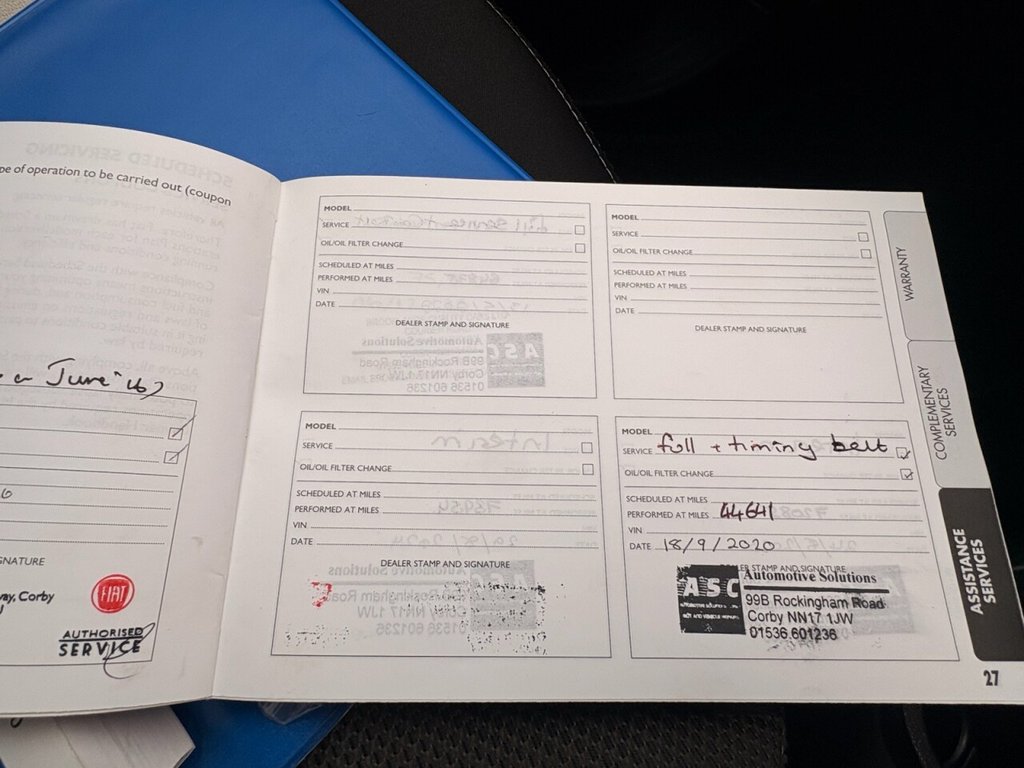 pe of operation to be carried out (coupon
June "16)
GNATURE
way, Corby
FIAT
AUTHORISED
SERVICE
MODEL
SERVICE
OIL/OIL FILTER CHANGE
SCHEDULED AT MILES
PERFORMED AT MILES
VIN
DATE
DEALER STAMP AND SIGNATURE
MODEL
SERVICE
OIL/OIL FILTER CHANGE
SCHEDULED AT MILES
PERFORMED AT MILES
VIN
DATE
DEALER STAMP AND SIGNATURE
MODEL
SERVICE
OIL/OIL FILTER CHANGE
SCHEDULED AT MILES
PERFORMED AT MILES
VIN
DATE
DEALER STAMP AND SIGNATURE
MODEL
SERVICE full + timing belt
OIL/OIL FILTER CHANGE
SCHEDULED AT MILES
PERFORMED AT MILES 44641
VIN
DATE 18/9/2020
ER STAMP AND SIGNATURE
ASC Automotive Solutions
99B Rockingham Road
Corby NN17 1JW
01536 601236
WARRANTY
COMPLEMENTARY
SERVICES
ASSISTANCE
SERVICES
27